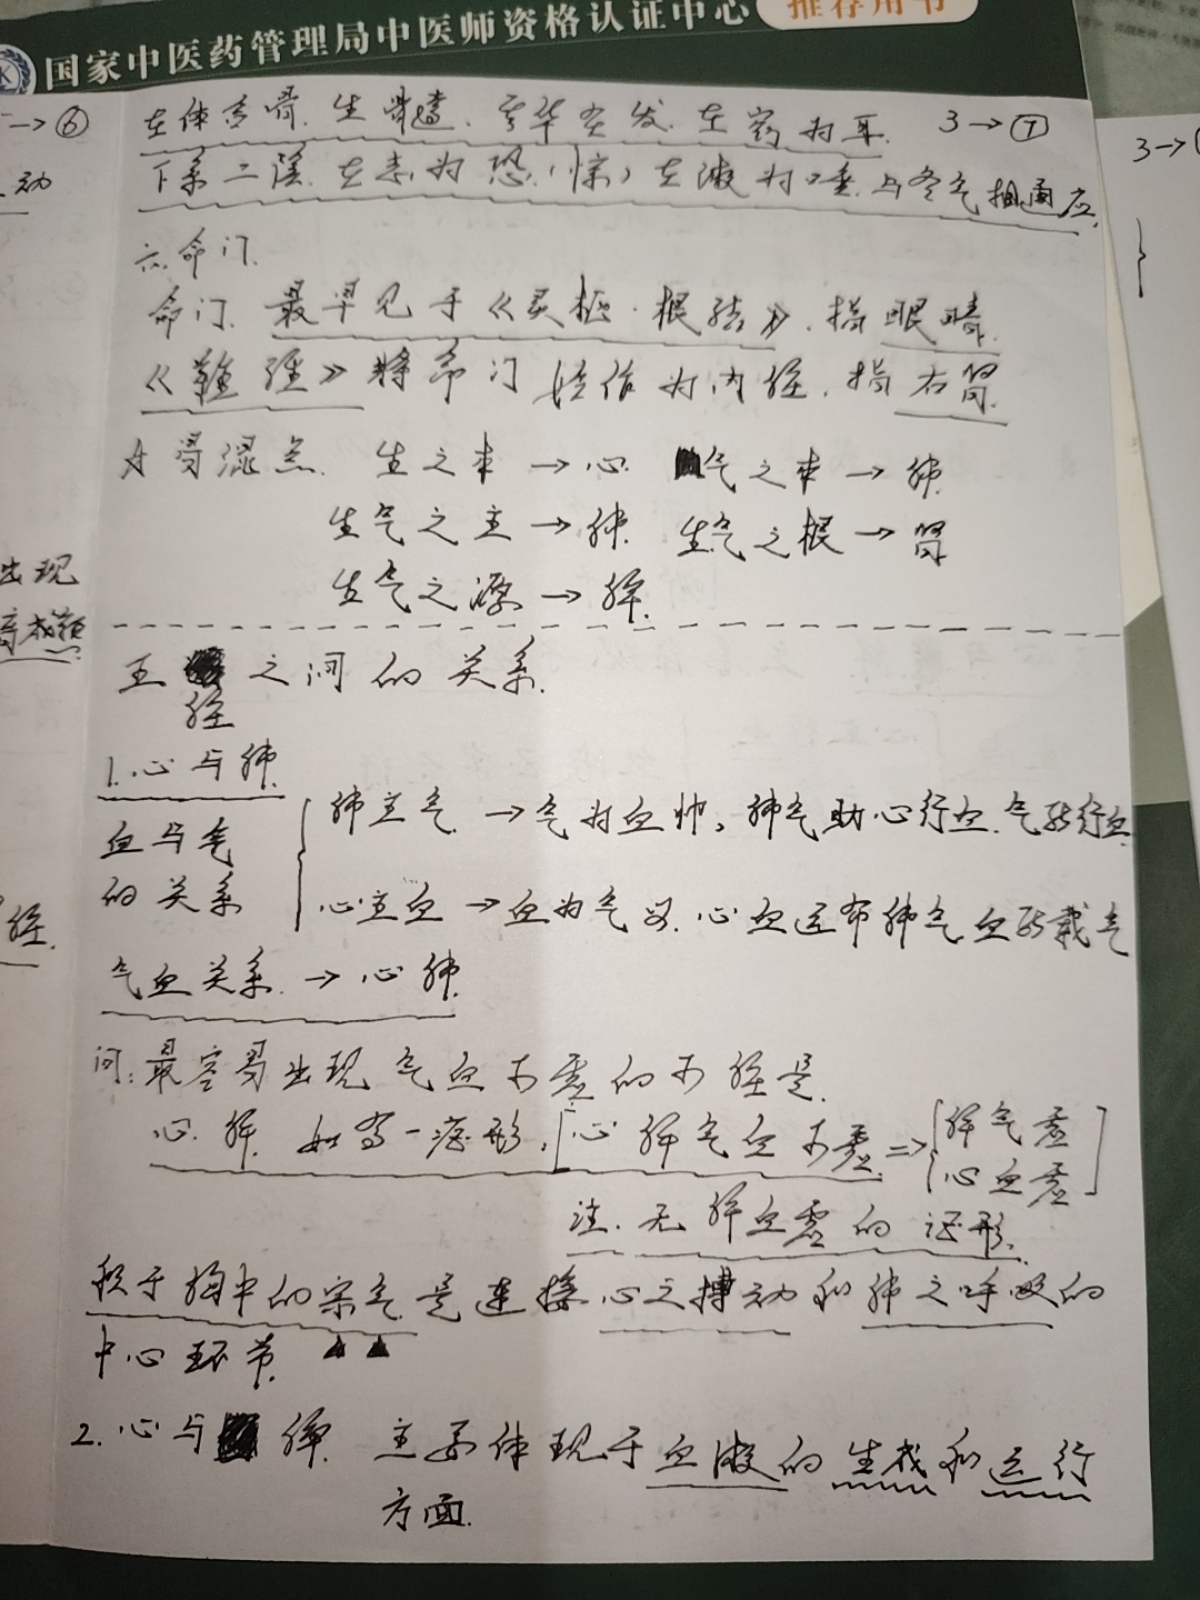 国家中医药管理局中医师资格认证中心 推荐用书
→⑥
在体合骨. 生骨髓. 其华在发. 在窍为耳. 3→⑦
3→
动
下系二阴. 在志为恐(惊) 在液为唾. 与冬气相通应.
六.命门.
命门. 最早见于《灵枢·根结》. 指眼睛.
《难经》将命门始作为内脏. 指右肾.
易混点. 生之本→心. 气之本→肺.
生气之主→肺. 生气之根→肾
出现
生气之源→脾.
五 之间的关系.
脏
1.心与肺.
肺主气.→气为血帅, 肺气助心行血.气能行血.
血与气
的关系
心主血→血为气母.心血运布肺气.血能载气
脏.
气血关系.→心肺.
问:最容易出现气血不虚的不脏是.
心.脾. 如写一证形,[心脾气血不虚.⇒{脾气虚
心血虚]
注.无脾血虚的证形.
积于胸中的宗气是连接心之搏动和肺之呼吸的
中心环节.▲▲
2.心与 脾. 主要体现于血液的生成和运行
方面.